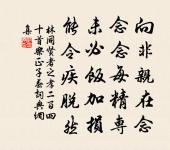 向非親在念
念念每精專
未必飯加損
能令疾脫然
林同賢者之孝二百四
十首樂正子春詞典網
集